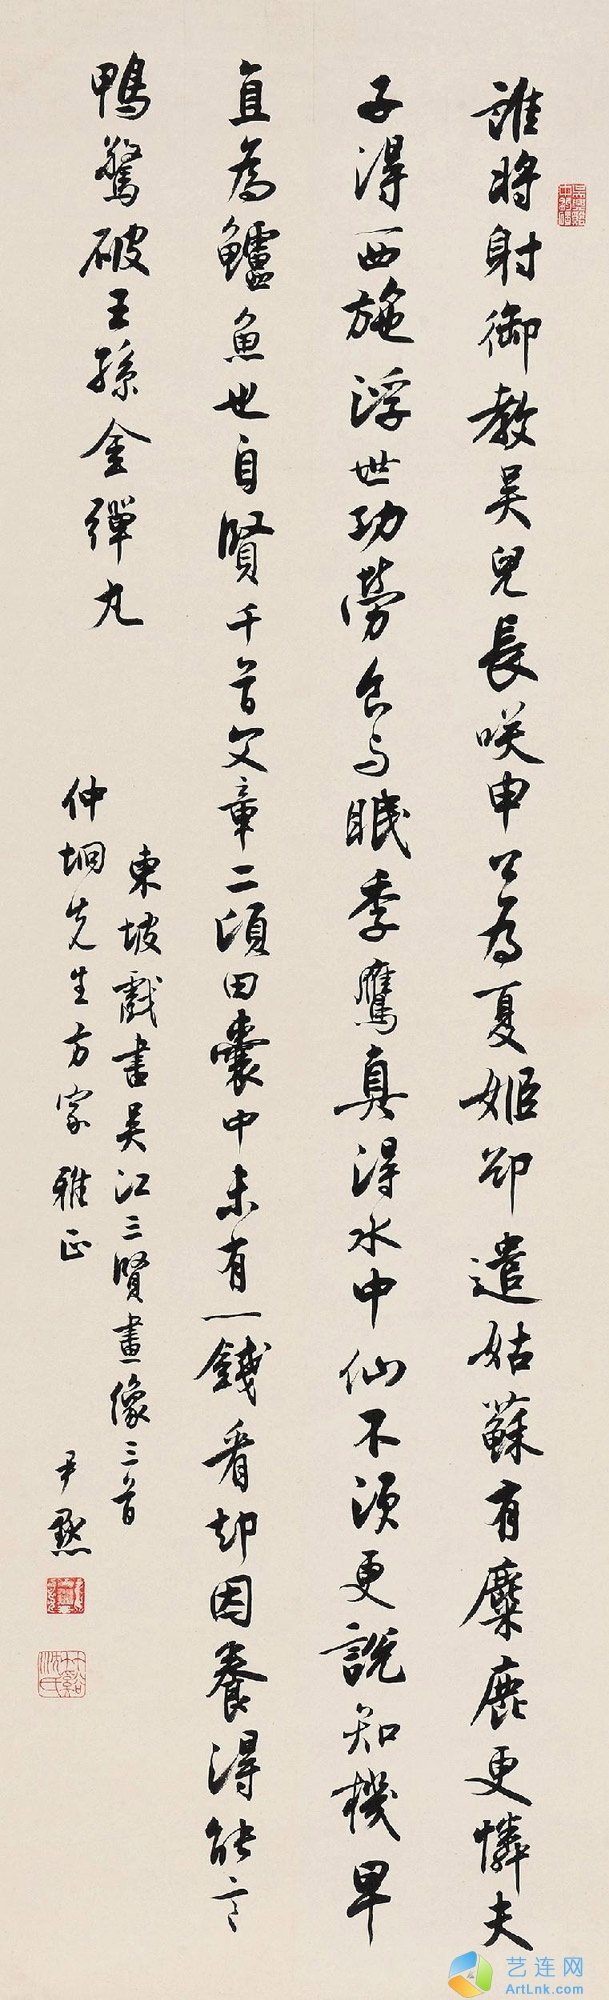 誰將射御教吳兒長咲申公為夏姬卻遣姑蘇有麋鹿更憐夫
子得西施浮世功勞食与眠季鷹真得水中仙不須更說知機早
直為鱸魚也自賢千首文章二頃田囊中未有一錢看却因養得能言
鴨驚破王孫金彈丸
東坡戲書吳江三賢畫像三首
仲坰先生方家雅正
尹默
竹谿沈氏
艺连网
ArtLnk.com